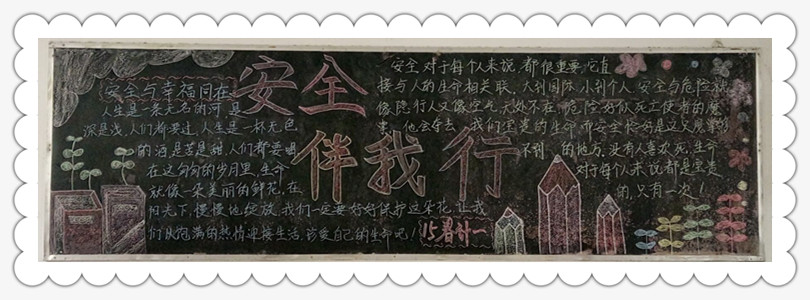 安全伴我行
安全与幸福同在
人生是一条无名的河,是
深是浅,人们都要过,人生是一杯无色
的酒,是苦是甜,人们都要喝
在这匆匆的岁月里,生命
就像一朵美丽的鲜花,在
阳光下,慢慢地绽放,我们一定要好好保护这朵花,让我
们以饱满的热情迎接生活,珍爱自己的生命吧!
15春计一
安全对于每个人来说,都很重要,它直
接与人的生命相关联,大到国际,小到个人,安全与危险就
像隐行人又像空气,无处不在,危险好似死亡使者的魔
他会夺去我们宝贵的生命,而安全恰好是这只魔掌伸
不到的地方,没有人喜欢死,生命
对于每个人来说都是宝贵
的,只有一次!